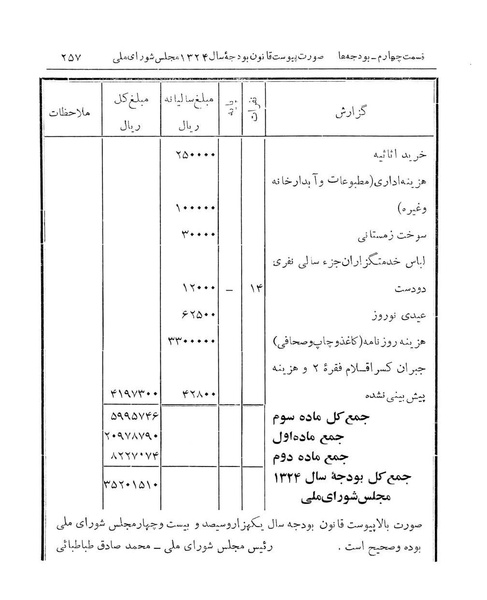 قسمت چهارم ـ بودجه‌ها صورت پیوست قانون بودجهٔ سال ۱۳۲۴ مجلس شورای ملی ۲۵۷
گزارش نفرات پایه مبلغ سالیانه ریال مبلغ کل ریال ملاحظات
خرید اثاثیه ۲۵۰۰۰۰
هزینه اداری (مطبوعات و آبدارخانه
وغیره) ۱۰۰۰۰۰
سوخت زمستانی ۳۰۰۰۰
لباس خدمتگزاران جزء سالی نفری
دودست ۱۴ ـ ۱۲۰۰۰
عیدی نوروز ۶۲۵۰۰
هزینه روزنامه (کاغذ و چاپ و صحافی) ۳۳۰۰۰۰۰
جبران کسر اقلام فقرهٔ ۲ و هزینه
پیش بینی نشده ۴۲۸۰۰ ۴۱۹۷۳۰۰
جمع کل ماده سوم ۵۹۹۵۷۴۶
جمع ماده اول ۲۰۹۷۸۷۹۰
جمع ماده دوم ۸۲۲۷۰۷۴
جمع کل بودجهٔ سال ۱۳۲۴
مجلس شورای ملی ۳۵۲۰۱۵۱۰
صورت بالا پیوست قانون بودجه سال یکهزار و سیصد و بیست و چهار مجلس شورای ملی
بوده وصحیح است . رئیس مجلس شورای ملی ـ محمد صادق طباطبائی